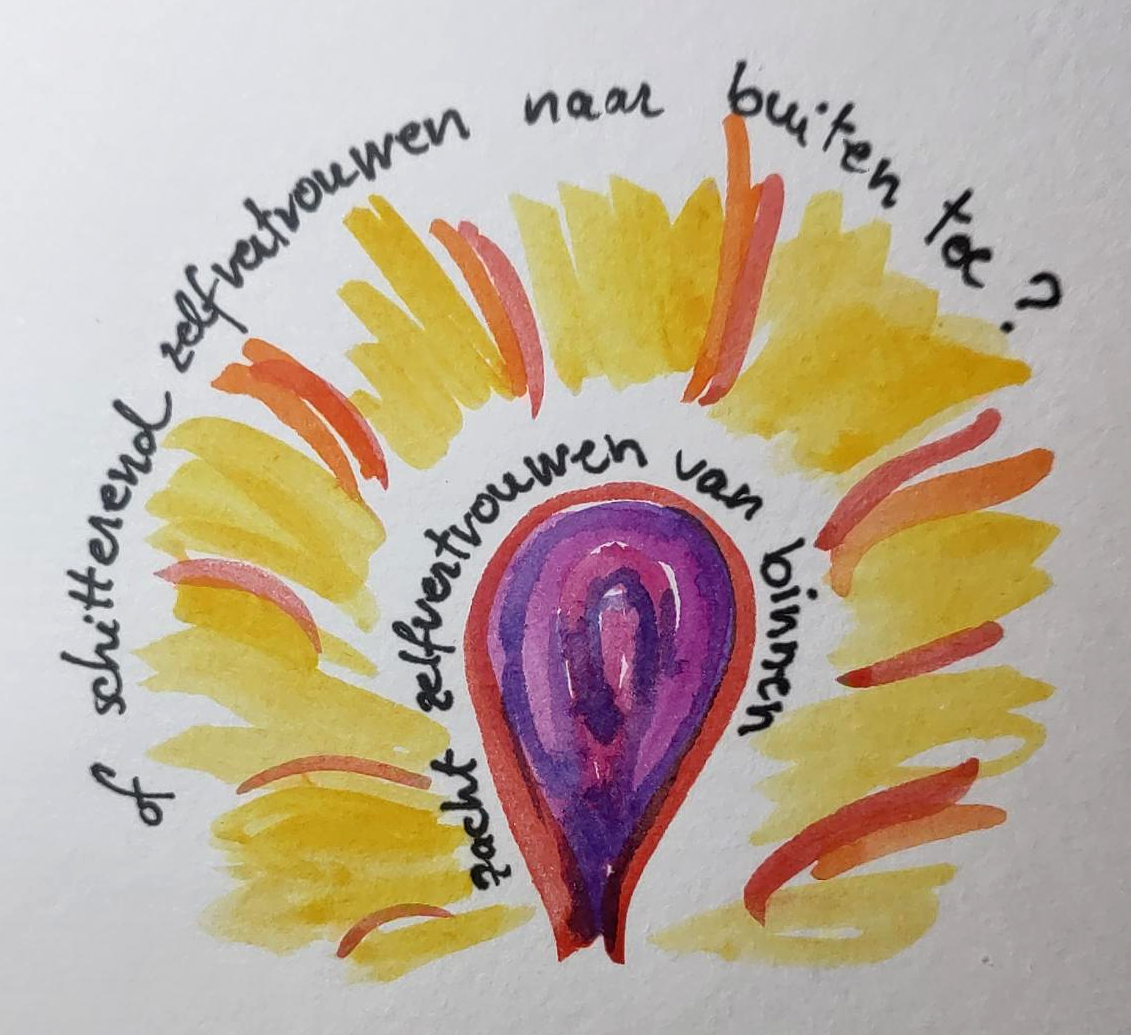 zacht zelfvertrouwen van binnen
of schitterend zelfvertrouwen naar buiten toe?